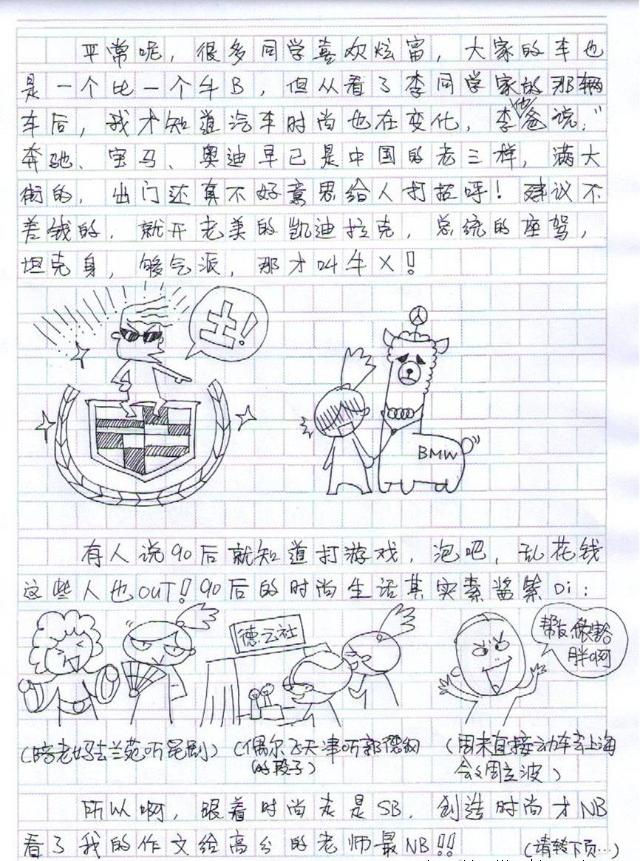 平常呢，很多同学喜欢炫富，大家的车也
是一个比一个牛B，但从看了李同学家的那辆
车后，我才知道汽车时尚也在变化，李他爸说："
奔驰、宝马、奥迪早已是中国的老三样，满大
街的，出门还真不好意思给人打招呼！建议不
差钱的，就开老美的凯迪拉克，总统的座驾，
坦克身，够气派，那才叫牛X！
土！
BMW
有人说90后就知道打游戏，泡吧，乱花钱
这些人也OUT！90后的时尚生活其实素酱紫Di：
德云社
帮瓦做
胖啊
(陪老妈去兰苑听昆剧)
(偶尔飞天津听郭德纲
的段子)
(周末直接动车去上海
会会周立波)
所以啊，跟着时尚走是SB，创造时尚才NB
看了我的作文给高分的老师最NB!!
(请转下页…)